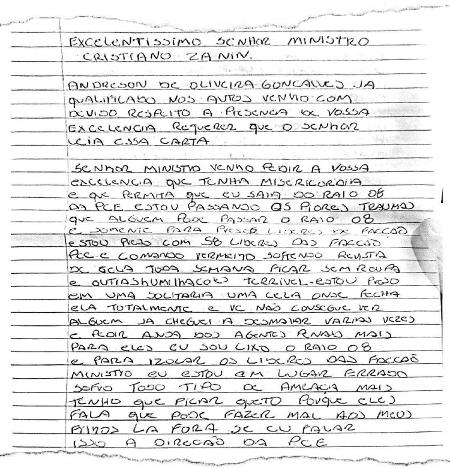 EXCELENTISSIMO SENHOR MINISTRO
CRISTIANO ZANIN.
ANDRESON DE OLIVEIRA GONCALVES JA
QUALIFICADO NOS AUTOS VENHO COM
DEVIDO RESPEITO A PRESENÇA DE VOSSA
EXCELENCIA REQUERER QUE O SENHOR
LEIA ESSA CARTA.
SENHOR MINISTRO VENHO PEDIR A VOSSA
EXCELENCIA QUE TENHA MISERICORDIA
E QUE PERMITA QUE EU SAIA DO RAIO 08
DA PCE ESTOU PASSANDO OS PIORES TRAUMAS
QUE ALGUEM PODE PASSAR O RAIO 08
E SOMENTE PARA PRESOS LIDERES DE FACCÃO
ESTOU PRESO COM 58 LIDERES DAS FACCÃO
PCC E COMANDO VERMELHO SOFRENDO REVISTA
DE CELA TODA SEMANA FICAR SEM ROUPA
E OUTRAS HUMILHACOES TERRIVEL ESTOU PRESO
EM UMA SOLITARIA UMA CELA ONDE FECHA
ELA TOTALMENTE E VC NÃO CONSEGUE VER
ALGUEM JA CHEGUEI A DESMAIAR VARIAS VEZES
E PEDIR AJUDA DOS AGENTES PENAIS MAIS
PARA ELES EU SOU LIXO O RAIO 08
E PARA IZOLAR OS LIDERES DAS FACCÃO
MINISTRO EU ESTOU EM LUGAR ERRADO
SOFRO TODO TIPO DE AMEAÇA MAIS
TENHO QUE FICAR QUETO PORQUE ELES
FALA QUE PODE FAZER MAL AOS MEUS
FILHOS LA FORA SE EU FALAR
ISSO A DIRECÃO DA PCE